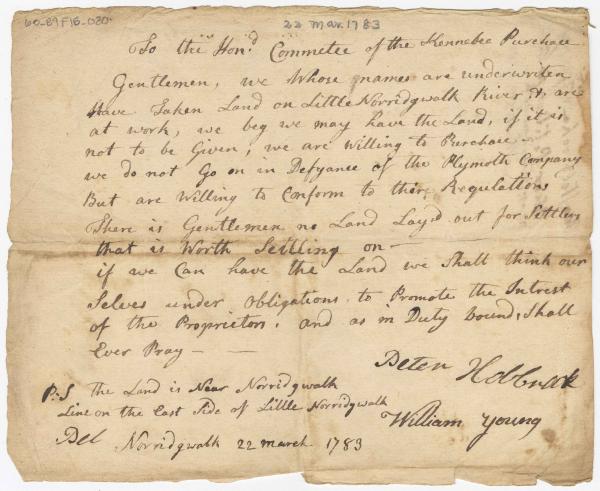 60-89F16-020.
22 Mar. 1783
To the Hon.d Commetee of the Kennebec Purchase
Gentlemen, we Whose names are underwriten
Have Taken Land on Little Norridgwalk River & are
at work, we beg we may have the Land, if it is
not to be Given, we are willing to Purchase -
we do not Go on in Defyance of the Plymoth Company
But are Willing to Conform to their Regulations
There is Gentlemen no Land Layd out for Settlers
that is Worth Settling on -
if we Can have the Land we Shall think our
Selves under obligations to Promote the Intrest
of the Proprietors, and as in Duty bound, Shall
Ever Pray - -
Peter
William Young
P.S the Land is Near Norridgwalk
Line on the East Side of Little Norridgwalk
Norridgwalk 22 march 1783